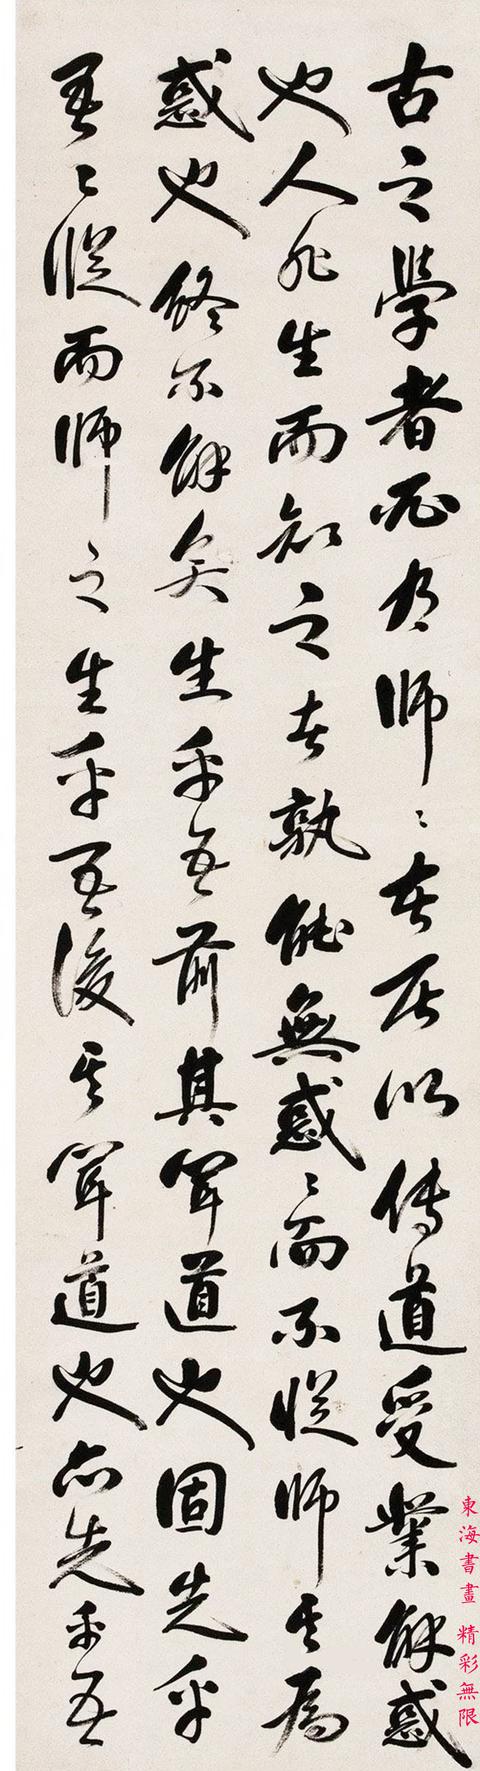 古之學者必有師〻者所以傳道受業解惑
也人非生而知之者孰能無惑〻而不從師其為
惑也終不解矣生乎吾前其聞道也固先乎
吾〻從而師之生乎吾後其聞道也亦先乎吾
東海書畫 精彩無限